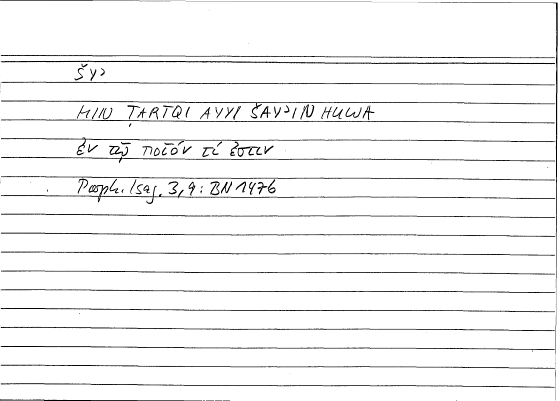 ŠYʾ
MIN ṬARTQI AYYI ŠAYʾIN HUWA
ἐν τῷ ποῖόν τί ἐστιν
Porph. Isag. 3,9: BN 147b